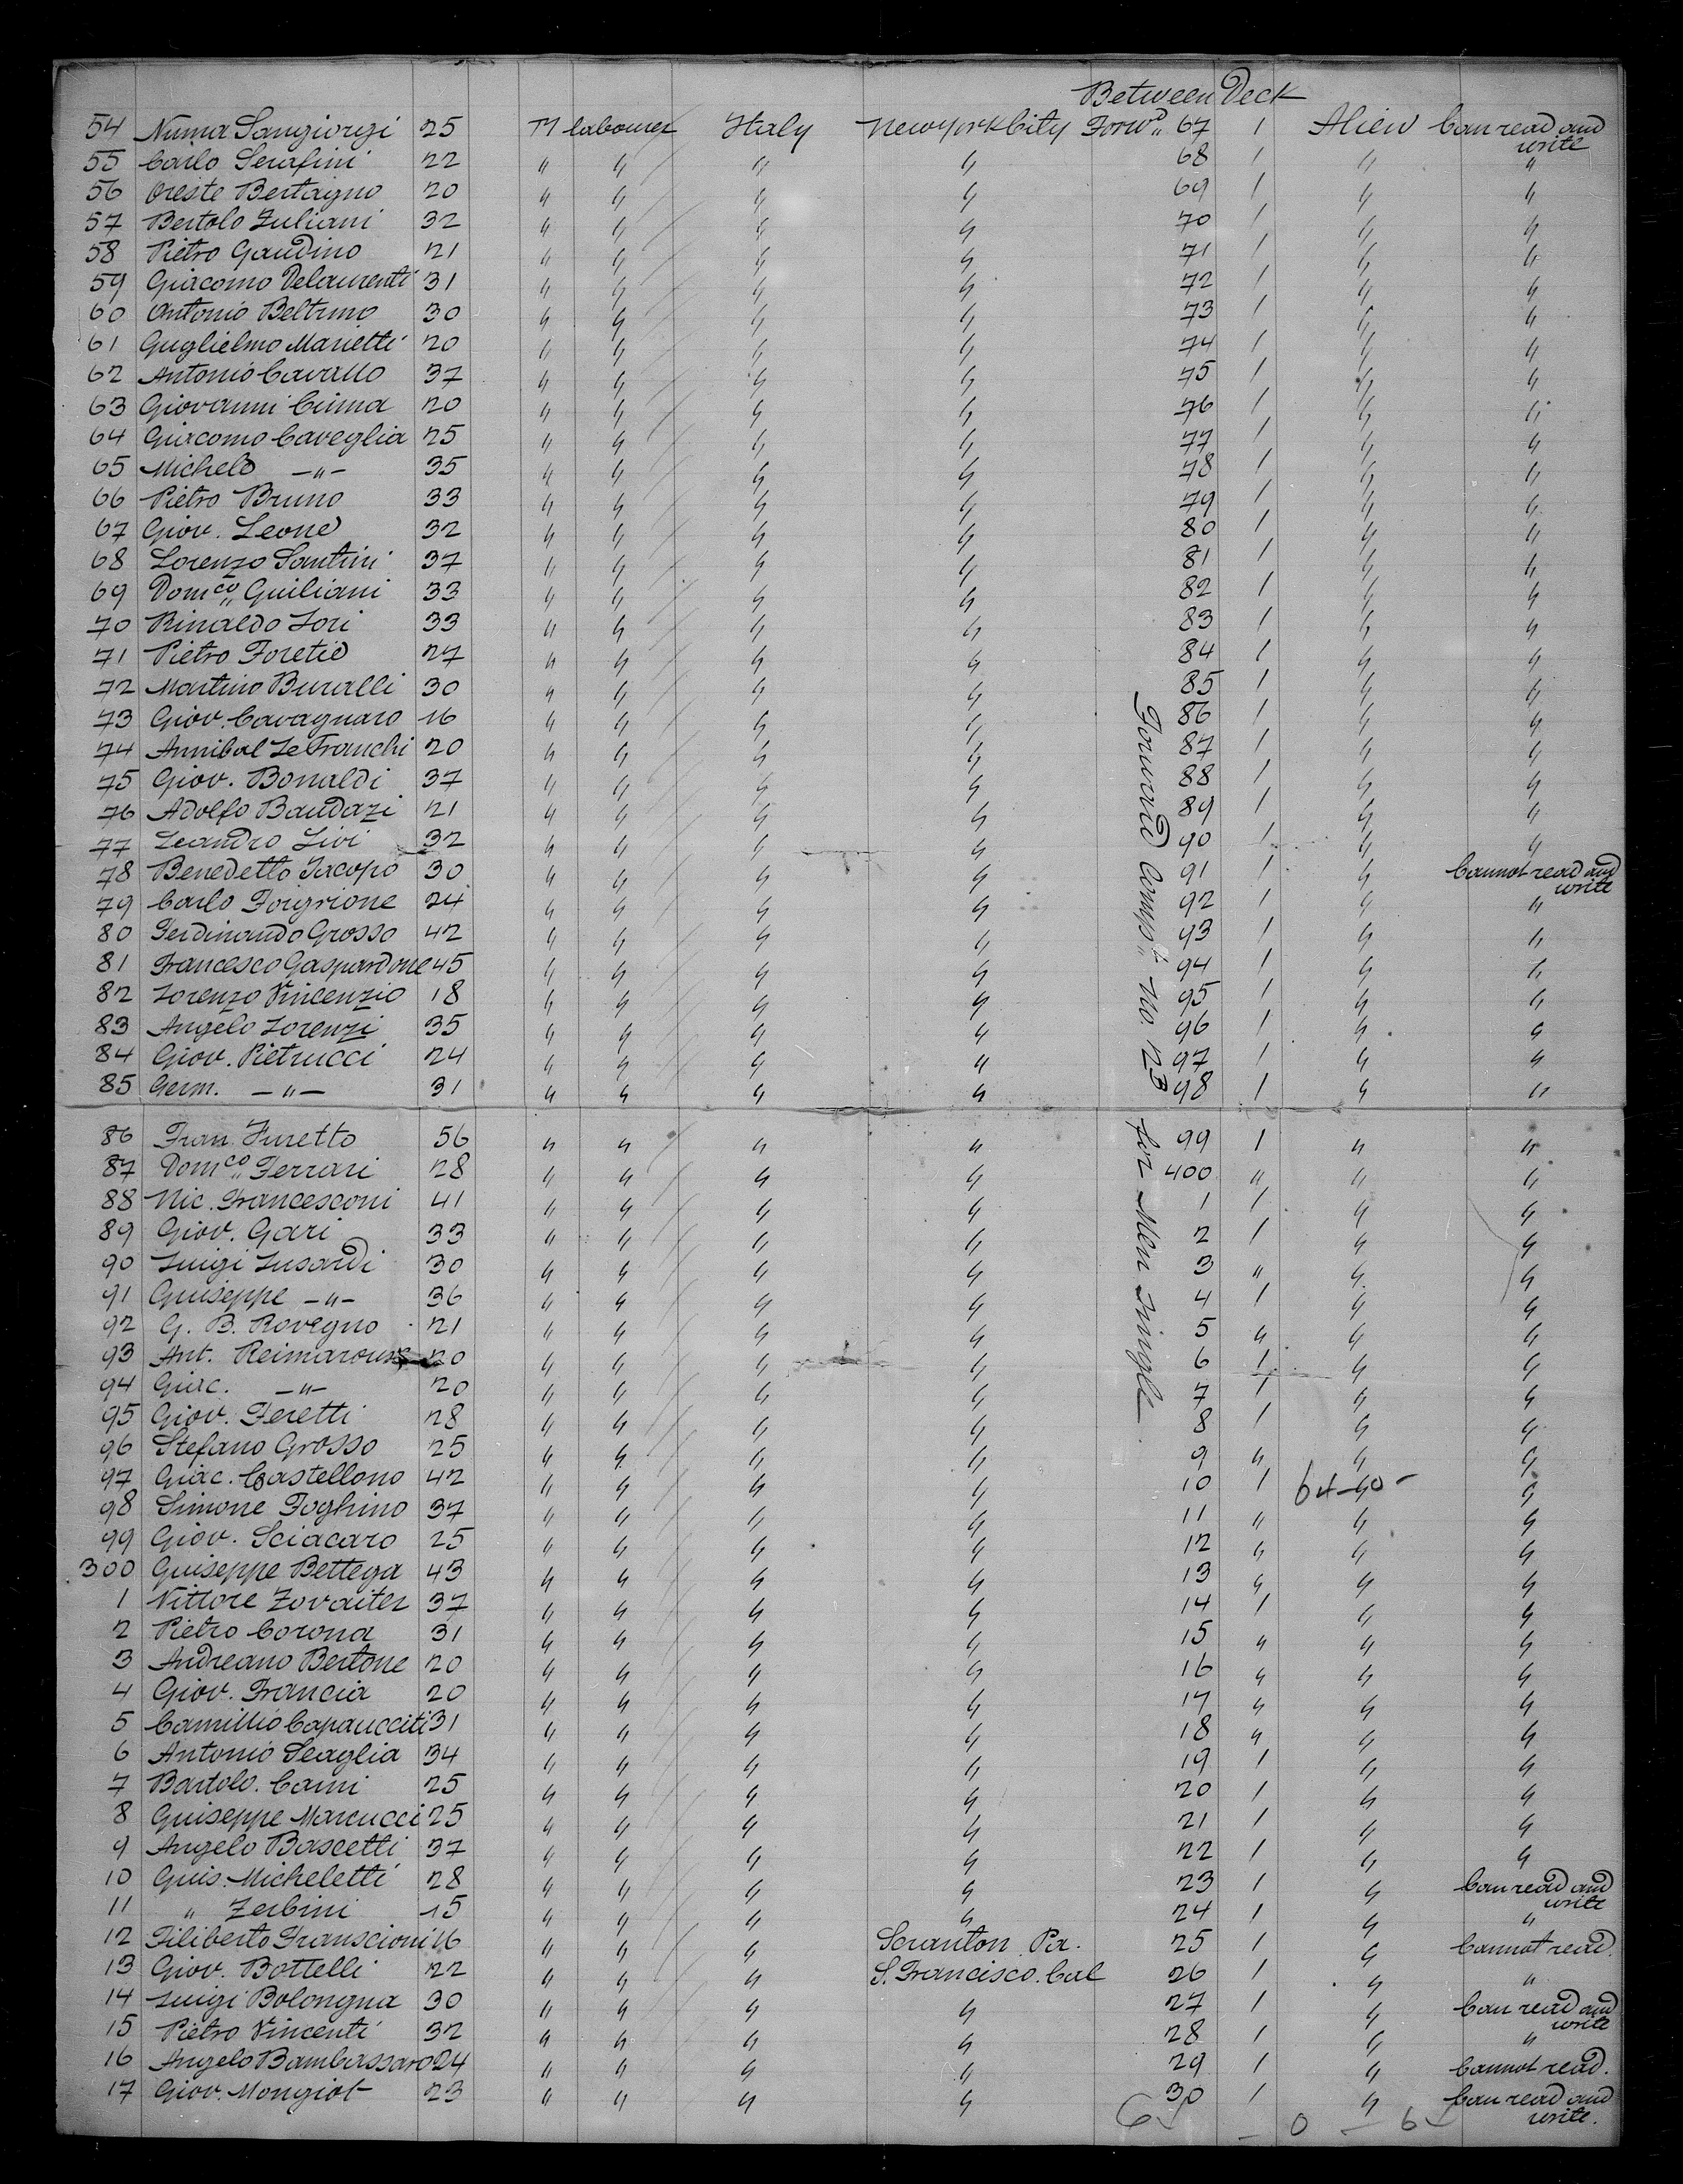 Between Deck
54 Numa Sangiorgi 25 M labourer Italy New York City Forwd 67 1 Alien Can read and write
55 Carlo Serafini 22 " " " " 68 1 " "
56 Oreste Bertagno 20 " " " " 69 1 " "
57 Bertolo Zuliani 32 " " " " 70 1 " "
58 Pietro Gaudino 21 " " " " 71 1 " "
59 Giacomo Delaurenti 31 " " " " 72 1 " "
60 Antonio Beltrmo 30 " " " " 73 1 " "
61 Guglielmo Marietti 20 " " " " 74 1 " "
62 Antonio Cavallo 37 " " " " 75 1 " "
63 Giovanni Cuma 20 " " " " 76 1 " "
64 Giacomo Caveglia 25 " " " " 77 1 " "
65 Michele —"— 35 " " " " 78 1 " "
66 Pietro Bruno 33 " " " " 79 1 " "
67 Giov. Leone 32 " " " " 80 1 " "
68 Lorenzo Santini 37 " " " " 81 1 " "
69 Domco Guiliani 33 " " " " 82 1 " "
70 Rinaldo Lori 33 " " " " 83 1 " "
71 Pietro Foretie 27 " " " " 84 1 " "
72 Martino Buralli 30 " " " " 85 1 " "
73 Giov. Cavagnaro 16 " " " " 86 1 " "
74 Annibal Le Franchi 20 " " " " 87 1 " "
75 Giov. Bonaldi 37 " " " " 88 1 " "
76 Adolfo Baudazi 21 " " " " 89 1 " "
77 Leandro Livi 32 " " " " 90 1 " "
78 Benedetto Jacopo 30 " " " " 91 1 " Cannot read and write
79 Carlo Forgrione 24 " " " " 92 1 " "
80 Ferdinando Grosso 42 " " " " 93 1 " "
81 Francesco Gaspardone 45 " " " " 94 1 " "
82 Lorenzo Vincenzio 18 " " " " 95 1 " "
83 Angelo Lorenzi 35 " " " " 96 1 " "
84 Giov. Pietrucci 24 " " " " 97 1 " "
85 Germ. —"— 31 " " " " 98 1 " "
Forward Compt No. 23 for Men single
86 Fran. Furetto 56 " " " " 99 1 " "
87 Domco Ferrari 28 " " " " 400 " " "
88 Nic. Francesconi 41 " " " " 1 1 " "
89 Giov. Gari 33 " " " " 2 1 " "
90 Luigi Lusardi 30 " " " " 3 " " "
91 Guiseppe —"— 36 " " " " 4 1 " "
92 G. B. Rovegno 21 " " " " 5 " " "
93 Ant. 20 " " " " 6 1 " "
94 Giac. —"— 20 " " " " 7 1 " "
95 Giov. Feretti 28 " " " " 8 1 " "
96 Stefano Grosso 25 " " " " 9 " " "
97 Giac. Castellono 42 " " " " 10 1 " "
98 Simone Foghino 37 " " " " 11 " " "
99 Giov. Sciacaro 25 " " " " 12 " " "
300 Guiseppe Bettega 43 " " " " 13 " " "
1 Vittore Zovaiter 37 " " " " 14 1 " "
2 Pietro Corona 31 " " " " 15 " " "
3 Andreano Bertone 20 " " " " 16 " " "
4 Giov. Francia 20 " " " " 17 " " "
5 Camillio Capaucciti 31 " " " " 18 " " "
6 Antonio Scaglia 34 " " " " 19 1 " "
7 Bartolo. Caini 25 " " " " 20 1 " "
8 Guiseppe Marcucci 25 " " " " 21 1 " "
9 Angelo Bascetti 37 " " " " 22 1 " "
10 Guis. Micheletti 28 " " " " 23 1 " Can read and write
11 " Zerbini 15 " " " " 24 1 " "
12 Filiberto Franscioni 16 " " " Scranton Pa. 25 1 " Cannot read.
13 Giov. Bottelli 22 " " " S. Francisco. Cal 26 1 " "
14 Luigi Bolongna 30 " " " " 27 1 " Can read and write
15 Pietro Vincenti 32 " " " " 28 1 " "
16 Angelo Bambassaro 24 " " " " 29 1 " Cannot read.
17 Giov. Mongiot 23 " " " " 30 1 " Can read and write.